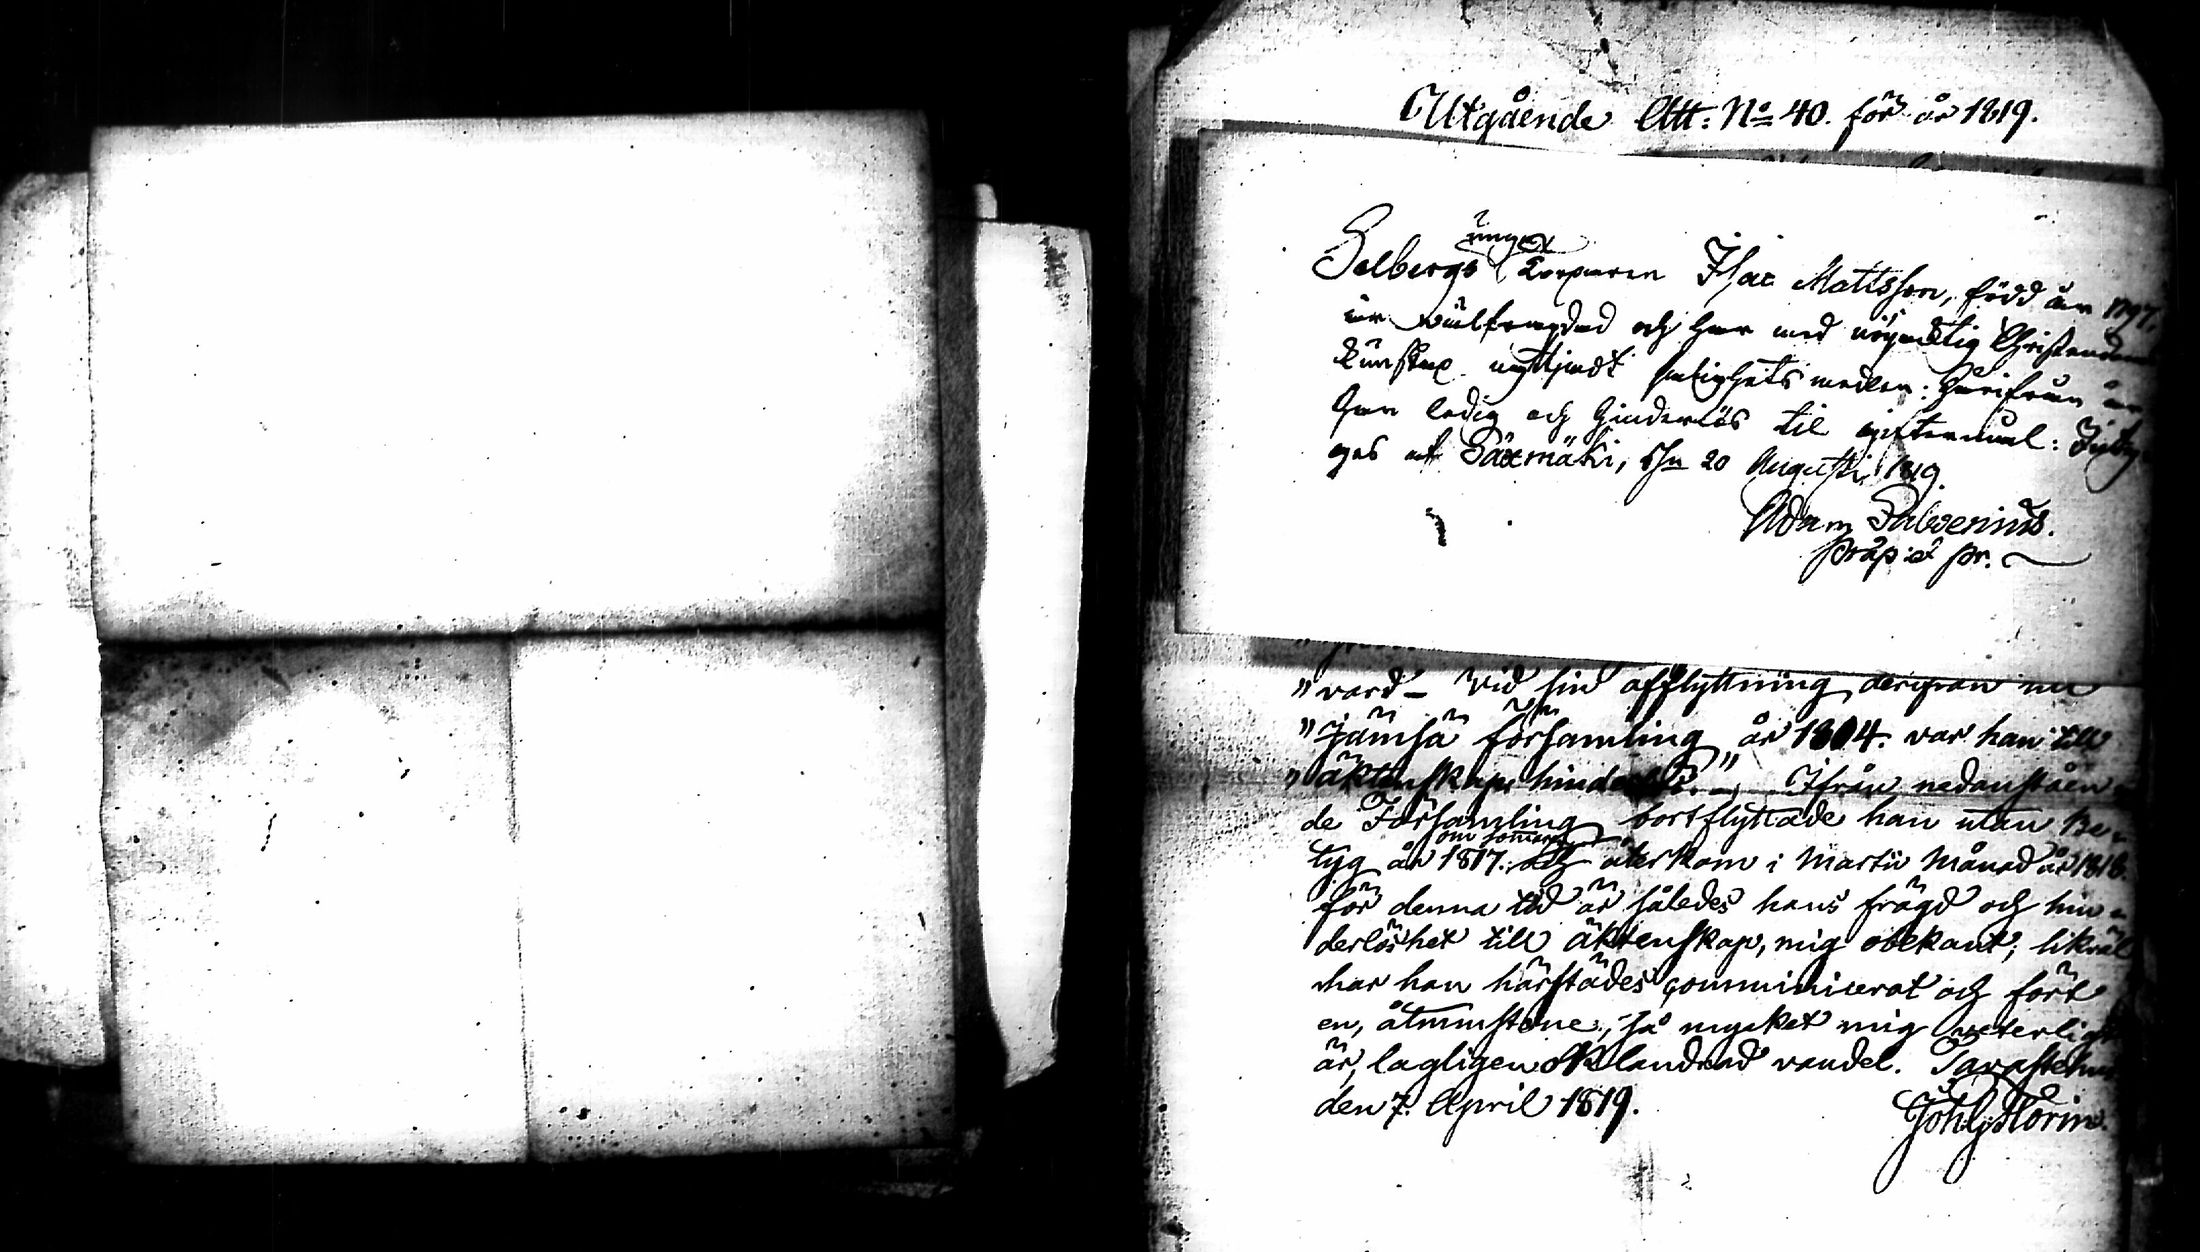 Utgående Att: No 40. för år 1819.
unge
Selbergs Torparen Isac Mattsson, född år 1797.
är wälfrägdad och har med nöjaktig Christendoms
kunskap nyttjadt salighets medlen: härifrån är
han ledig och hinderlös til ägtenskap: Intyg
gas af Säxmäki, d. 20 Augusti 1819.
Adam Salvenius.
Præp: et Pr.
"vard – vid sin afflyttning derifrån till
"Jämsä församling år 1804. var han till
"äktenskap hinderlös." – Ifrån nedanståen-
de Församling bortflyttade han utan Be-
om sommaren
tyg år 1817. och återkom i Martii Månad år 1818.
för denna tid är således hans frägd och hin-
derlöshet till äktenskap, mig obekant; likväl
har han härstädes communicerat och fört
en, åtminstone, så mycket mig veterligt
är, lagligen oklandrad vandel. Tavastehus
den 7. April 1819.
Joh. G. Florin.